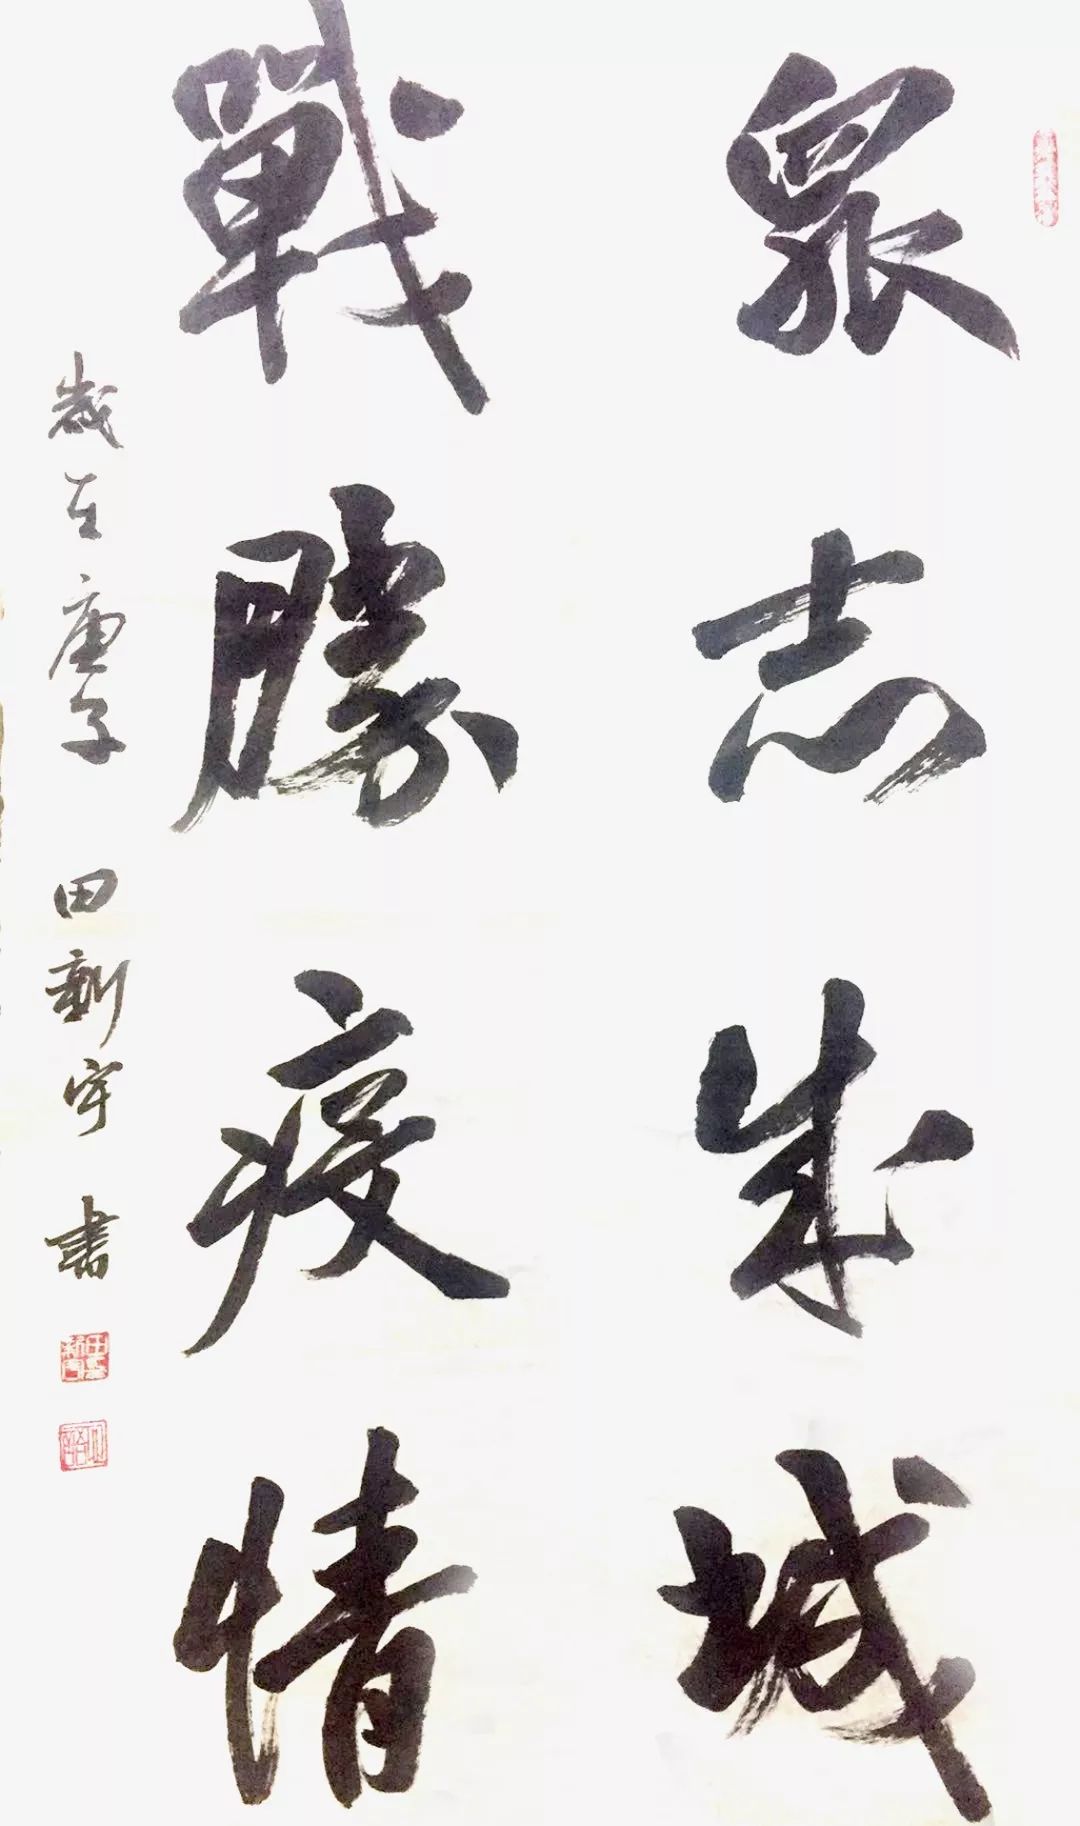 眾志成城
戰勝疫情
歲在庚子 田新宇書